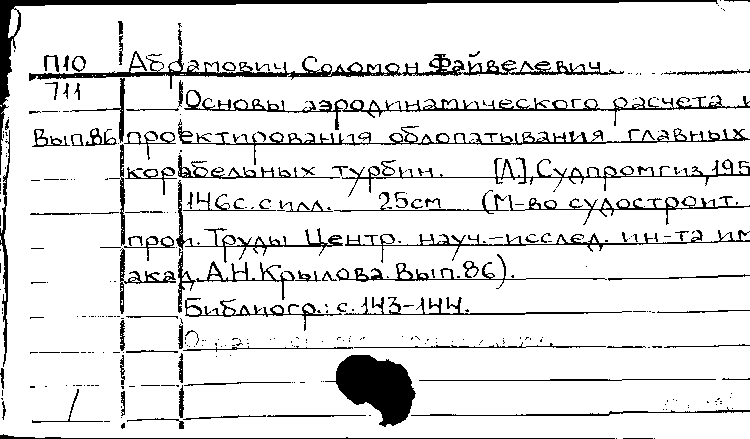 П10 Абрамович, Соломон Файвелевич.
711 Основы аэродинамического расчета и
Вып.86 проектирования облопатывания главных
корабельных турбин. [Л], Судпромгиз, 195
146с. с илл. 25см (М-во судостроит.
пром. Труды Центр. науч.-исслед. ин-та им
акад. А.Н. Крылова. Вып. 86).
Библиогр.: с. 143-144.